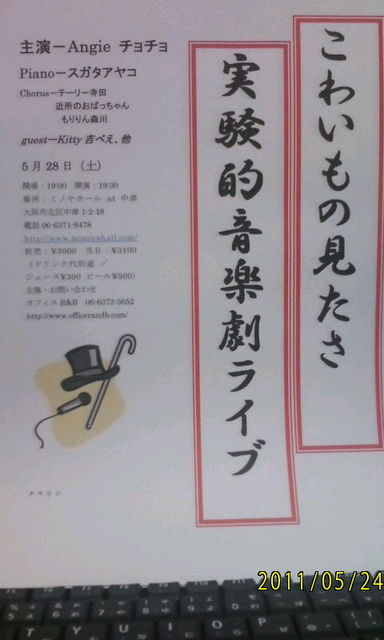 こわいもの見たさ
実験的音楽劇ライブ
主演ーAngie チョチョ
Pianoースガタアヤコ
Chorusーテーリー寺田
近所のおばっちゃん
もりりん森川
guestーKitty 吉べえ、他
5月28日（土）
開場：19:00 開演：19:30
場所：ミノヤホール at 中津
大阪市北区中津 1-2-18
電話 06-6371-8478
http://www.minoyahall.com/
前売：¥3000 当日：¥3100
（1ドリンク代別途 ／
ジュース¥300 ビール¥500）
主催・お問い合わせ
オフィス R&B 06-6373-3652
http://www.officerandb.com/
2011/05/24
T Y U I O P